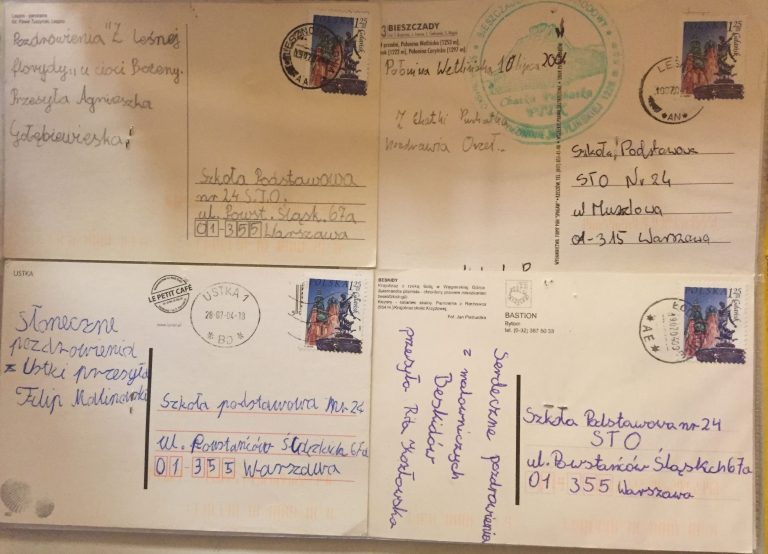 Pozdrowienia "Z Leśnej
florydy,, u cioci Bożeny.
Przesyła Agnieszka
Gołębiewska
POLSKA
1,25
Gdańsk
Szkoła Podstawowa
nr 24 S.T.O.
ul. Powst. Śląsk. 67a
01-355 Warszawa
BIESZCZADY
Połonina Wetlińska 10 lipca
Z Chatki Puchatka
pozdrawia Orzeł.
Chatka Puchatka
PTTK
1,25
Gdańsk
LES
AN
Szkoła Podstawowa
STO Nr 24
ul Muszlowa
01-315 Warszawa
USTKA
LE PETIT CAFÉ
USTKA 1
28-07-04-18
BD
POLSKA
1,25
Gdańsk
Słoneczne
pozdrowienia
z Ustki przesyła
Filip Malinowski
Szkoła podstawowa Nr. 24
ul. Powstańców Śląskich 67a
01-355 Warszawa
BESKIDY
Fot. Jan
BASTION
Bytom
tel. (0-32) 387 50 33
Serdeczne pozdrowienia
z malowniczych
Beskidów
przesyła Rita Kozłowska
1,25
Gdańsk
AE
Szkoła Podstawowa nr 24
STO
ul. Powstańców Śląskich 67a
01 355 Warszawa